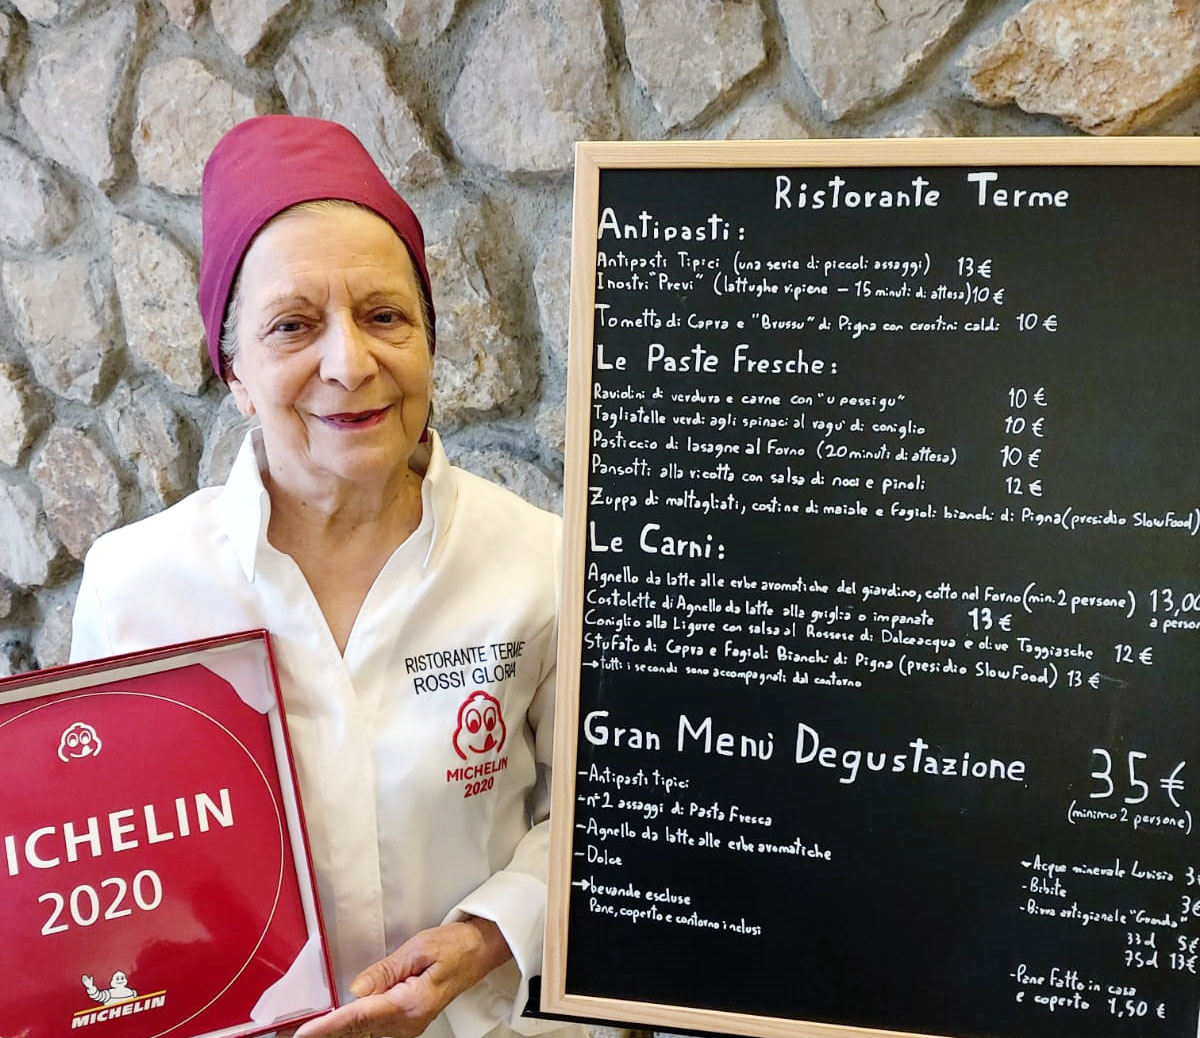 Ristorante Terme
Antipasti:
Antipasti Tipici (una serie di piccoli assaggi) 13€
I nostri "Previ" (lattughe ripiene - 15 minuti di attesa) 10€
Tometta di Capra e "Brussu" di Pigna con crostini caldi 10 €
Le Paste Fresche:
Raviolini di verdura e carne con "u pessigu" 10 €
Tagliatelle verdi agli spinaci al ragu' di coniglio 10 €
Pasticcio di lasagne al Forno (20 minuti di attesa) 10 €
Pansotti alla ricotta con salsa di noci e pinoli 12 €
Zuppa di maltagliati, costine di maiale e Fagioli bianchi di Pigna (presidio SlowFood)
Le Carni:
Agnello da latte alle erbe aromatiche del giardino, cotto nel Forno (min. 2 persone) 13,00
a person
Costolette di Agnello da latte alla griglia o impanate 13 €
Coniglio alla Ligure con salsa al Rossese di Dolceacqua e olive Taggiasche 12 €
Stufato di Capra e Fagioli Bianchi di Pigna (presidio SlowFood) 13 €
→ tutti i secondi sono accompagnati dal contorno
Gran Menù Degustazione 35 €
(minimo 2 persone)
-Antipasti tipici
-n° 2 assaggi di Pasta Fresca
-Agnello da latte alle erbe aromatiche
-Dolce
→ bevande escluse
Pane, coperto e contorno inclusi
-Acque minerale Lurisia 3€
-Bibite 3€
-Birra artigianale
33 cl 5€
75 cl 13€
-Pane Fatto in casa
e coperto 1,50 €
RISTORANTE TERME
ROSSI GLORIA
MICHELIN
2020
ICHELIN
2020
MICHELIN